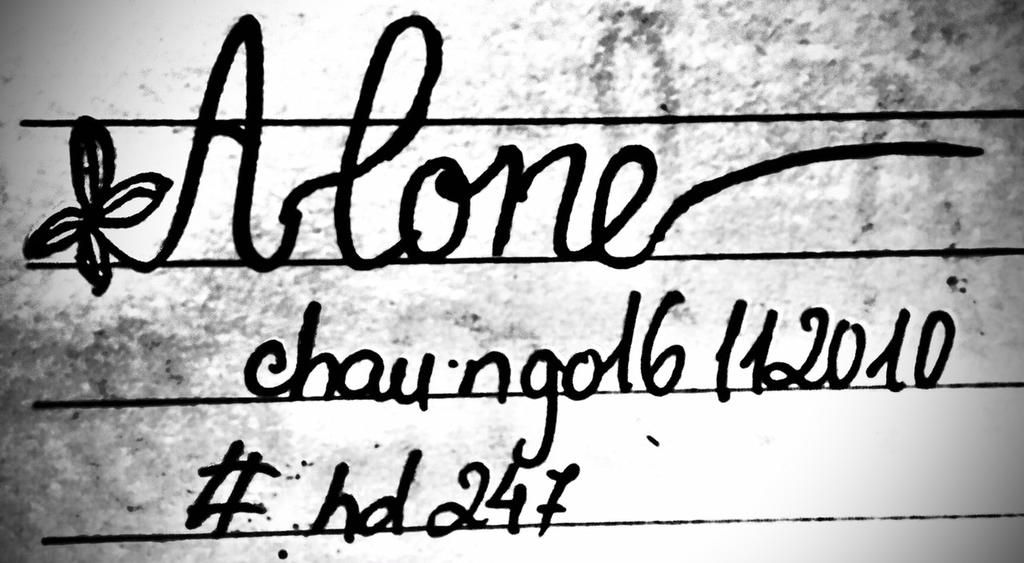 Alone
chau.ngo16112010
# hd247